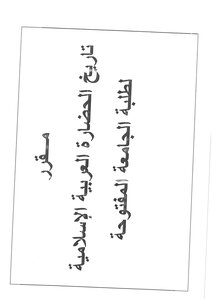 مقرر
تاريخ الحضارة العربية الإسلامية
لطلبة الجامعة المفتوحة